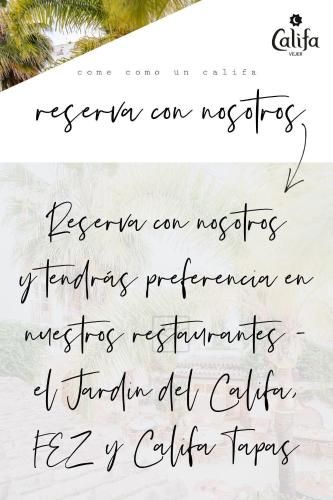 Califa
VEJER
come como un califa
reserva con nosotros
Reserva con nosotros
y tendrás preferencia en
nuestros restaurantes -
el Jardin del Califa,
FEZ y Califa Tapas